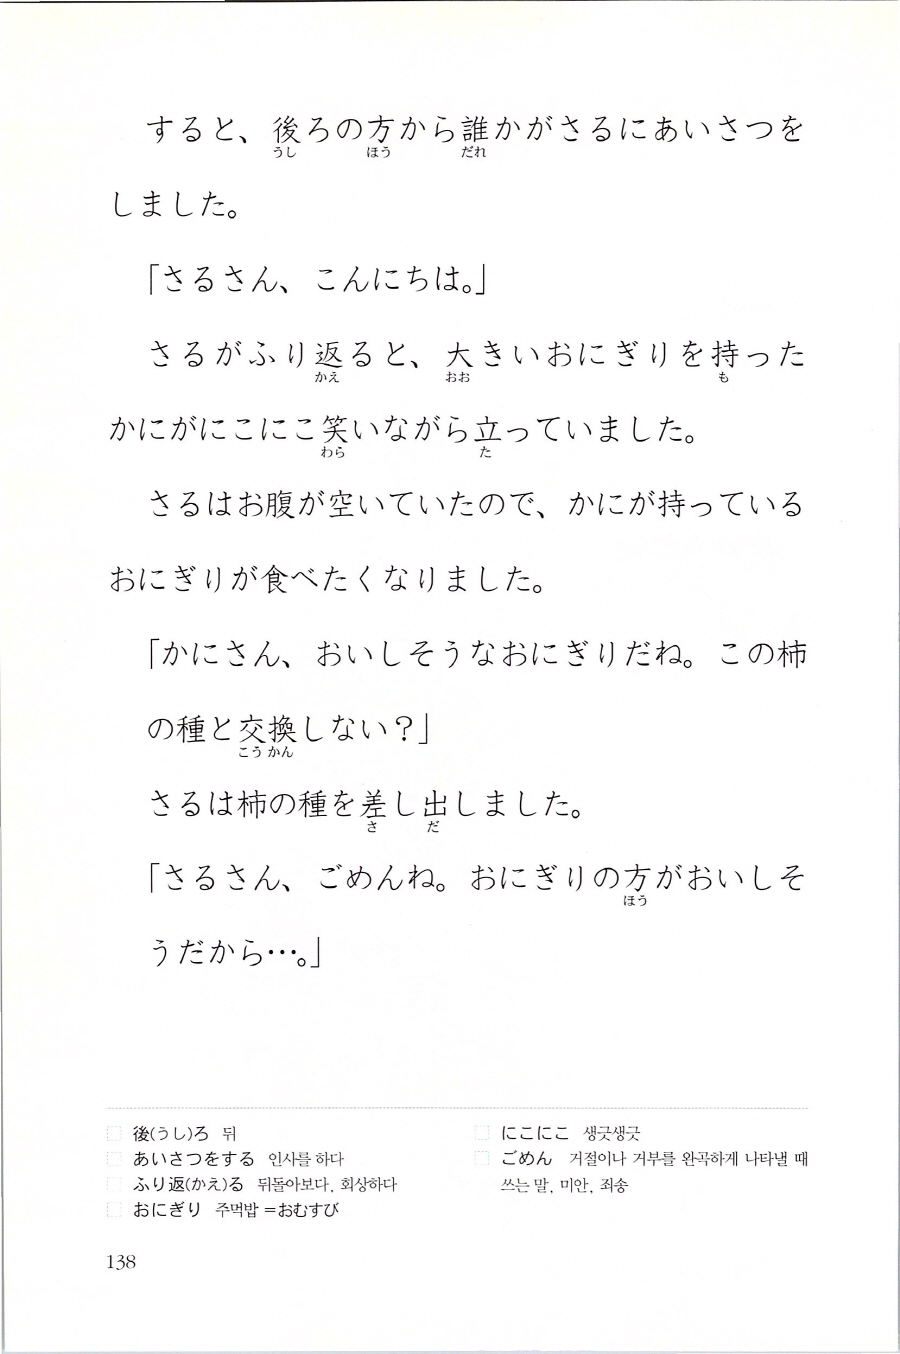 すると、後ろの方から誰かがさるにあいさつを
うし ほう だれ
しました。
「さるさん、こんにちは。」
さるがふり返ると、大きいおにぎりを持った
かえ おお も
かにがにこにこ笑いながら立っていました。
わら た
さるはお腹が空いていたので、かにが持っている
おにぎりが食べたくなりました。
「かにさん、おいしそうなおにぎりだね。この柿
の種と交換しない？」
こう かん
さるは柿の種を差し出しました。
さ だ
「さるさん、ごめんね。おにぎりの方がおいしそ
ほう
うだから…。」
後(うし)ろ 뒤
あいさつをする 인사를 하다
ふり返(かえ)る 뒤돌아보다, 회상하다
おにぎり 주먹밥 =おむすび
にこにこ 생긋생긋
ごめん 거절이나 거부를 완곡하게 나타낼 때
쓰는 말, 미안, 죄송
138